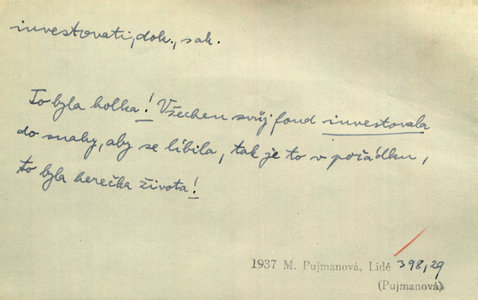 investovati, dok., sak.
To byla holka! Všechen svůj fond investovala
do snahy, aby se líbila, tak je to v pořádku,
to byla herečka života!
1937 M. Pujmanová, Lidé 398,29
(Pujmanová)